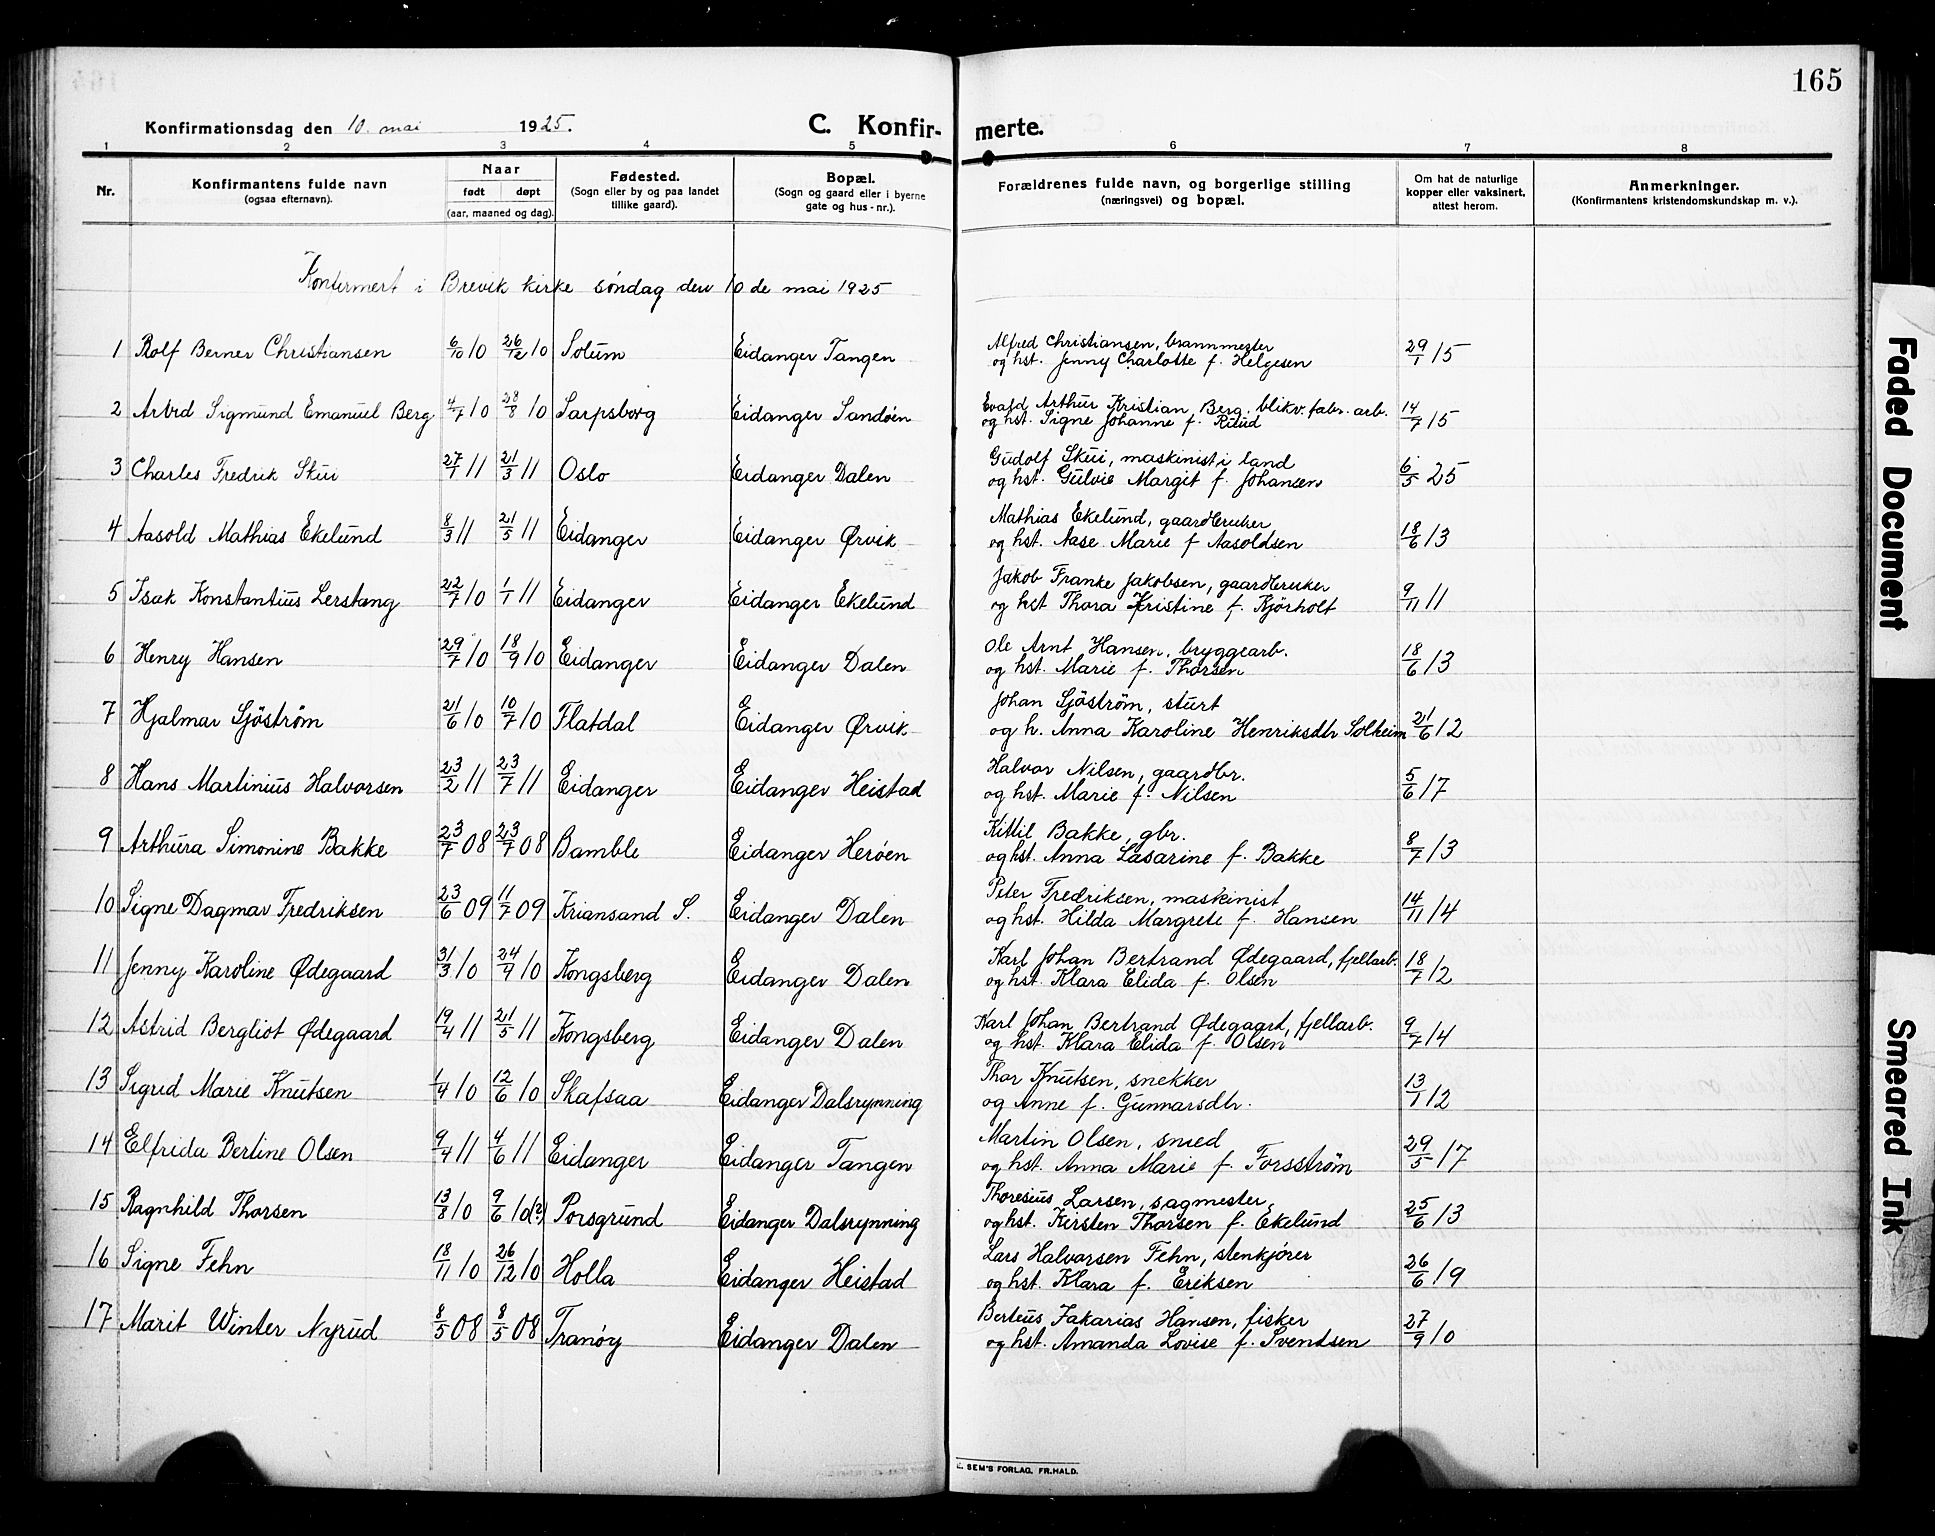 165
Konfirmationsdag den 10. mai 1925.
C. Konfir-
merte.
1 2 3 4 5 6 7 8
Nr.
Konfirmantens fulde navn
(ogsaa efternavn).
Naar
født døpt
(aar, maaned og dag).
Fødested.
(Sogn eller by og paa landet
tillike gaard).
Bopæl.
(Sogn og gaard eller i byerne
gate og hus-nr.).
Forældrenes fulde navn, og borgerlige stilling
(næringsvei) og bopæl.
Om hat de naturlige
kopper eller vaksinert,
attest herom.
Anmerkninger.
(Konfirmantens kristendomskundskap m. v.).
Konfirmert i Brevik kirke søndag den 10de mai 1925
1 Rolf Berner Christiansen 6/10 10 26/12 10 Solum Eidanger Tangen
Alfred Christiansen, brannmester
og hst. Jenny Charlotte f. Helgesen 29/1 15
2 Arvid Sigmund Emanuel Berg 4/7 10 28/8 10 Sarpsborg Eidanger Sandøen
Evald Arthur Kristian, Berg. blikv. fabr. arb.
og hst. Signe Johanne f. 14/7 15
3 Charles Fredrik Skui 27/1 11 21/3 11 Oslo Eidanger Dalen
Gudolf Skui, maskinist i land
og hst. Gulvie Margit f. Johansen 6/5 25
4 Aasold Mathias Ekelund 8/3 11 21/5 11 Eidanger Eidanger Ørvik
Mathias Ekelund, gaardbruker
og hst. Aase Marie f Aasoldsen 18/6 13
5 Isak Konstantius Lerstang 22/7 10 1/1 11 Eidanger Eidanger Ekelund
Jakob Franke Jakobsen, gaardbruker
og hst Thora Kristine f. Kjørholt 9/11 11
6 Henry Hansen 29/7 10 18/9 10 Eidanger Eidanger Dalen
Ole Arnt Hansen, bryggearb.
og hst. Marie f. Thorsen 18/6 13
7 Hjalmar Sjöström 21/6 10 10/7 10 Flatdal Eidanger Ørvik
Johan Sjöström, sturt
og h. Anna Karoline Henriksdtr Solheim 21/6 12
8 Hans Martinius Halvorsen 23/2 11 23/7 11 Eidanger Eidanger Heistad
Halvor Nilsen, gaardbr.
og hst. Marie f. Nilsen 5/6 17
9 Arthura Simonine Bakke 23/7 08 23/7 08 Bamble Eidanger Herøen
Kittil Bakke, gbr.
og hst. Anna Lasarine f. Bakke 8/7 13
10 Signe Dagmar Fredriksen 23/6 09 11/7 09 Kriansand S. Eidanger Dalen
Peter Fredriksen, maskinist
og hst. Hilda Margrete f. Hansen 14/11 14
11 Jenny Karoline Ødegaard 31/3 10 24/9 10 Kongsberg Eidanger Dalen
Karl Johan Bertrand Ødegaard, fjellarb.
og hst. Klara Elida f. Olsen 18/7 12
12 Astrid Bergliot Ødegaard 19/4 11 21/5 11 Kongsberg Eidanger Dalen
Karl Johan Bertrand Ødegaard, fjellarb.
og hst. Klara Elida f. Olsen 9/7 14
13 Sigrid Marie Knutsen 1/4 10 12/6 10 Skafsaa Eidanger Dalsrynning
Thor Knutsen, snekker
og Anne f. Gunnarsdtr. 13/1 12
14 Elfrida Bertine Olsen 9/4 11 4/6 11 Eidanger Eidanger Tangen
Martin Olsen, smed
og hst. Anna Marie f. Forsström 29/5 17
15 Ragnhild Thorsen 13/8 10 9/6 10(?) Porsgrund Eidanger Dalsrynning
Thoresius Larsen, sagmester,
og hst. Kirsten Thorsen f. Ekelund 25/6 13
16 Signe Fehn 18/11 10 26/12 10 Holla Eidanger Heistad
Lars Halvorsen Fehn, stenkjører
og hst. Klara f. Eriksen 26/6 19
17 Marit Winter Nyrud 8/5 08 8/5 08 Tranöy Eidanger Dalen
Berteus Zakarias Hansen, fisker
og hst. Amanda Lovise f. Svendsen 27/9 10
E. SEM'S FORLAG. FR.HALD.
Faded Document
Smeared Ink